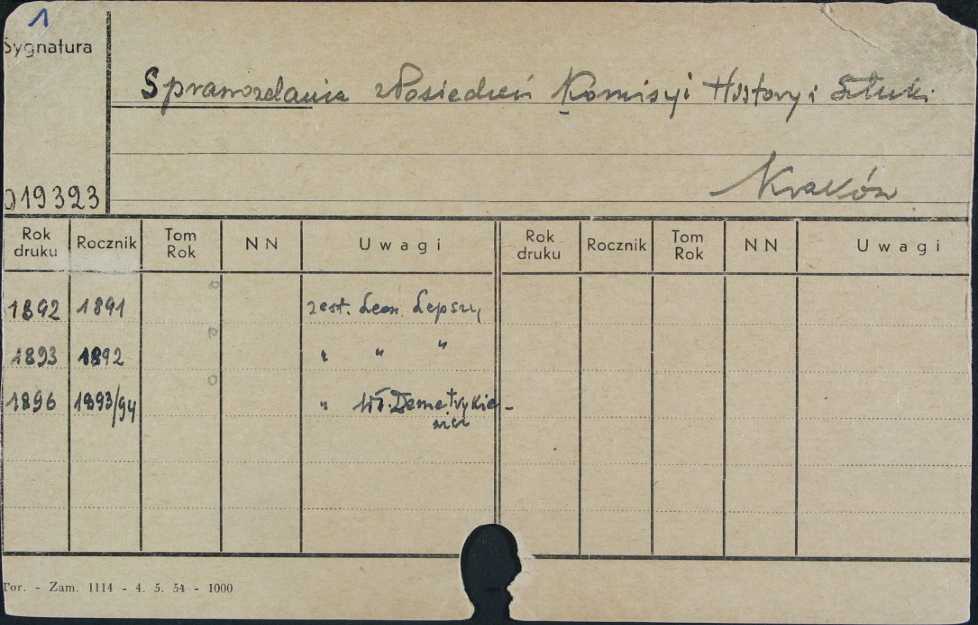 1
Sygnatura
Sprawozdania z Posiedzeń Komisyi Historyi Sztuki
Kraków
019323
Rok druku Rocznik Tom Rok NN Uwagi Rok druku Rocznik Tom Rok NN Uwagi
1892 1891 zest. Leon. Lepszy
1893 1892 " " "
1896 1893/94 " Wł. Demetrykie-
wicz
Tor. - Zam. 1114 - 4. 5. 54 - 1000